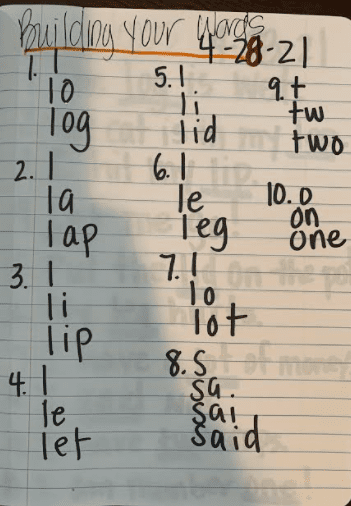 Building Your Words
4-28-21
1. l
lo
log
2. l
la
lap
3. l
li
lip
4. l
le
let
5. l
li
lid
6. l
le
leg
7. l
lo
lot
8. s
sa.
sai
said
9. t
tw
two
10. o
on
one